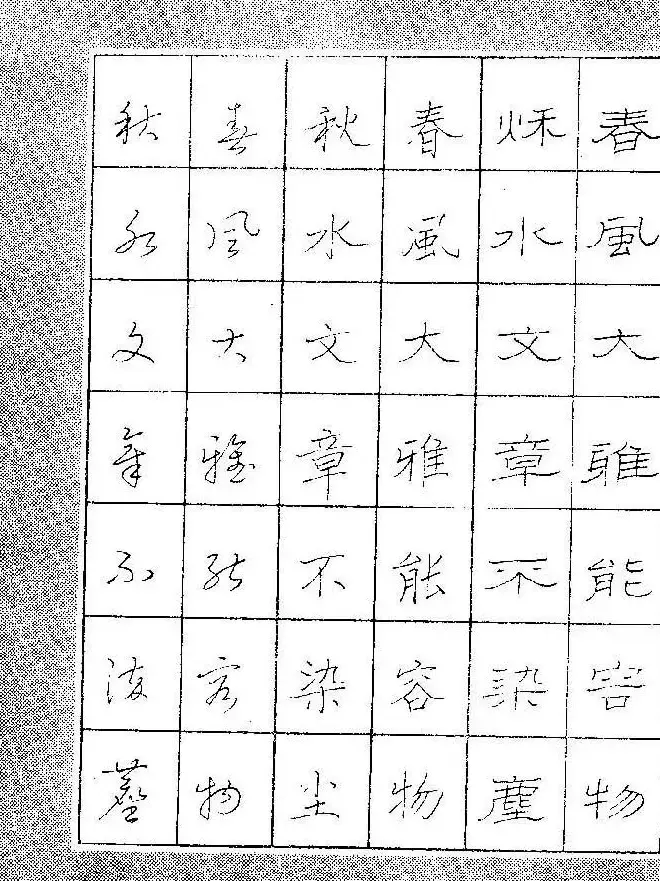 春風大雅能容物
秌水文章不染塵
春風大雅能容物
秋水文章不染尘
春風大雅能容物
秋水文章不染塵